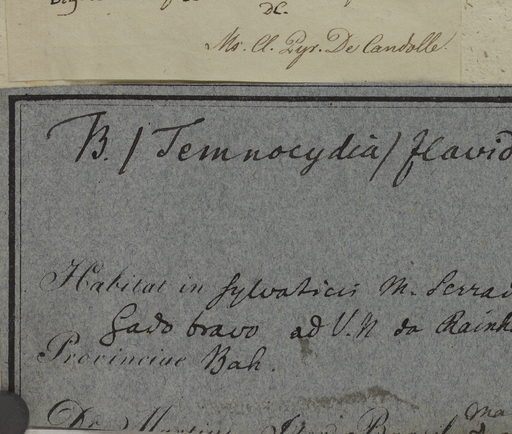 DC.
Mss. Cl. Pyr. De Candolle.
B. / Temnocydia / flavid
Habitat in sylvaticis M. Serrad
Gado bravo ad V. N da Rainh
Provinciae Bah.
Dr. Martius Iter Brasil Ma